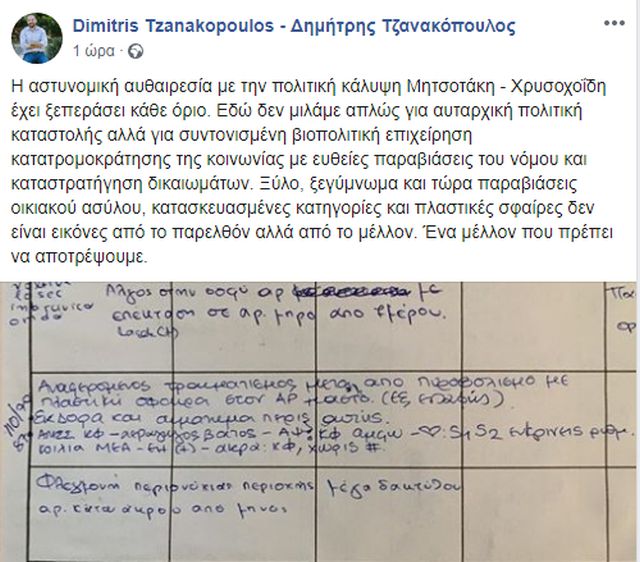 Dimitris Tzanakopoulos - Δημήτρης Τζανακόπουλος
1 ώρα ·
Η αστυνομική αυθαιρεσία με την πολιτική κάλυψη Μητσοτάκη - Χρυσοχοΐδη
έχει ξεπεράσει κάθε όριο. Εδώ δεν μιλάμε απλώς για αυταρχική πολιτική
καταστολής αλλά για συντονισμένη βιοπολιτική επιχείρηση
κατατρομοκράτησης της κοινωνίας με ευθείες παραβιάσεις του νόμου και
καταστρατήγηση δικαιωμάτων. Ξύλο, ξεγύμνωμα και τώρα παραβιάσεις
οικιακού ασύλου, κατασκευασμένες κατηγορίες και πλαστικές σφαίρες δεν
είναι εικόνες από το παρελθόν αλλά από το μέλλον. Ένα μέλλον που πρέπει
να αποτρέψουμε.
Άλγος στην οσφύ αρ με
επέκταση σε αρ. μηρό από 4μέρου.
Αναφερόμενος τραυματισμός μετά από πυροβολισμό με
πλαστική σφαίρα στον ΑΡ μαστό. (εξ επαφής)
Εκδορά και αιμάτωμα πέριξ αυτής.
ΚΦ άμφω - S1 S2 ευκρινείς ρυθμ.
κοιλία ΜΕΑ - ΕΗ (+) - άκρα: κφ, χωρίς #.
Φλεγμονή περιονύχιας περιοχής μέγα δακτύλου
αρ. κάτω άκρου από μηνός